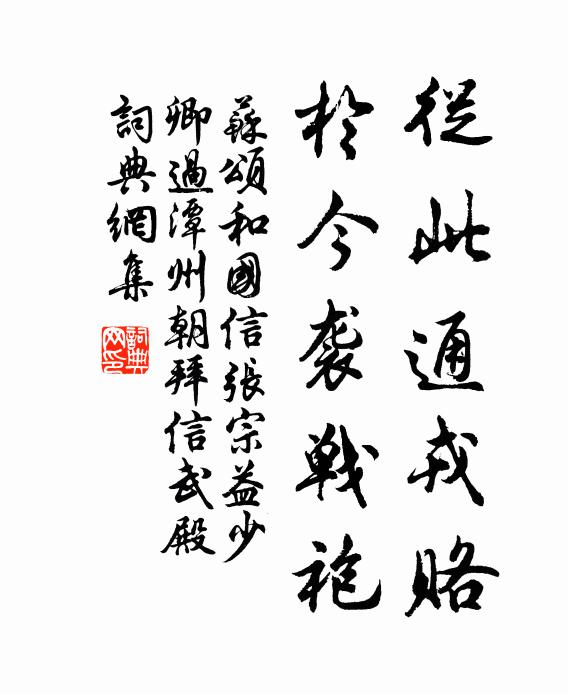 從此通戎賂
於今襲戰袍
蘇頌和國信張宗益少
卿過潭州朝拜信武殿
詞典網集
詞典
网印